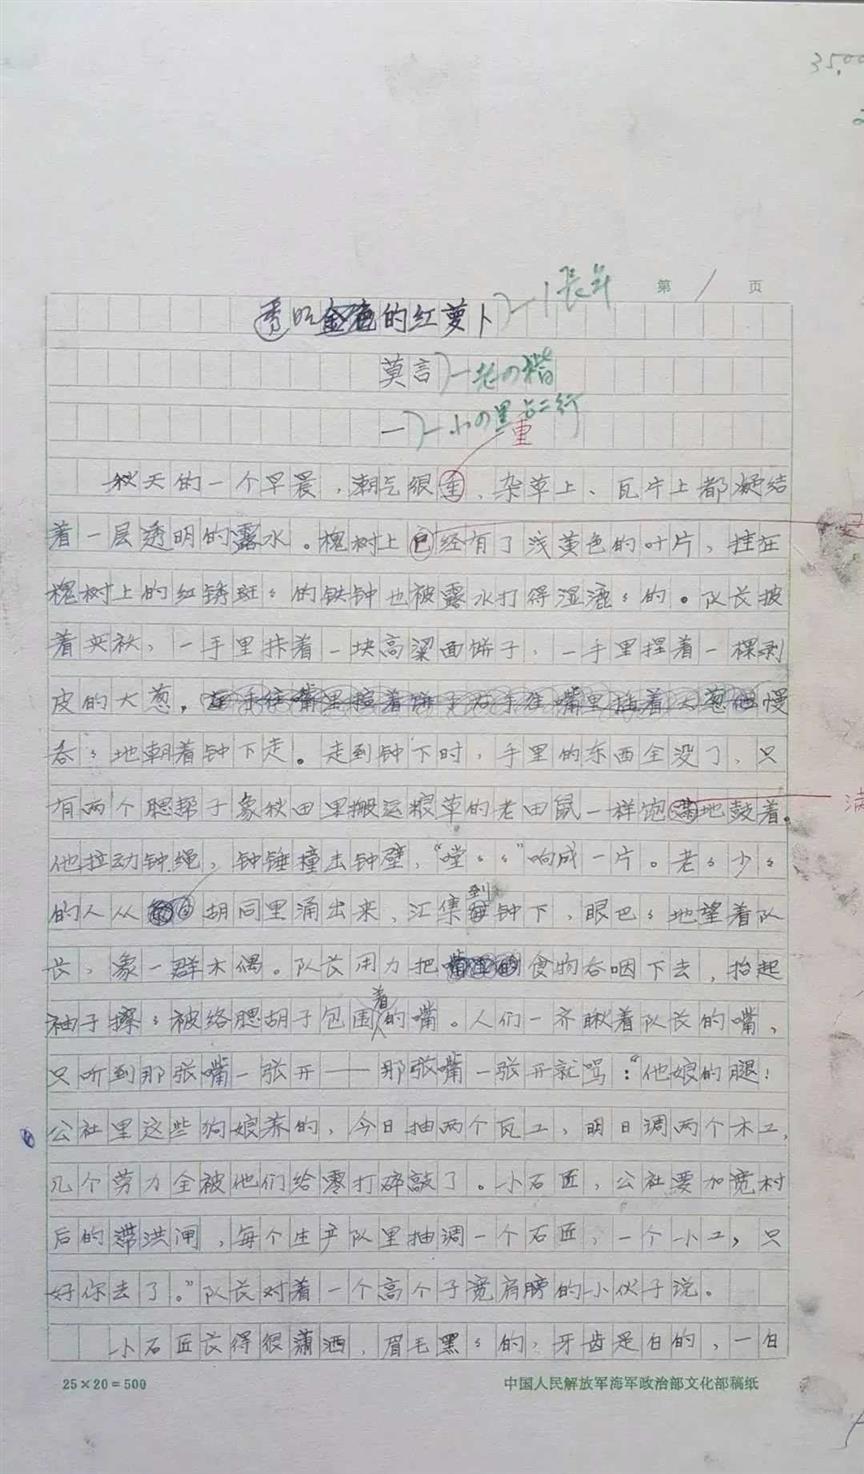 35,00
第 1 页
透明金色的红萝卜 长牟
莫言 老の楷
一 小の黑占二行
重
秋天的一个早晨，潮气很重，杂草上、瓦片上都凝结
着一层透明的露水。槐树上已经有了浅黄色的叶片，挂在
槐树上的红锈斑〻的铁钟也被露水打得湿漉〻的。队长披
着夹袄，一手里拤着一块高粱面饼子，一手里捏着一棵剥
皮的大葱，慢
吞〻地朝着钟下走。走到钟下时，手里的东西全没了，只
有两个腮帮子象秋田里搬运粮草的老田鼠一样饱满地鼓着。
满
他拉动钟绳，钟锤撞击钟壁，“嘡〻〻”响成一片。老〻少〻
的人从胡同里涌出来，汇集到钟下，眼巴〻地望着队
长，象一群木偶。队长用力把食物吞咽下去，抬起
袖子擦〻被络腮胡子包围着的嘴。人们一齐瞅着队长的嘴，
只听到那张嘴一张开——那张嘴一张开就骂：“他娘的腿！
公社里这些狗娘养的，今日抽两个瓦工，明日调两个木工，
几个劳力全被他们给零打碎敲了。小石匠，公社要加宽村
后的滞洪闸，每个生产队里抽调一个石匠，一个小工，只
好你去了。”队长对着一个高个子宽肩膀的小伙子说。
小石匠长得很潇洒，眉毛黑〻的，牙齿是白的，一白
25×20=500
中国人民解放军海军政治部文化部稿纸